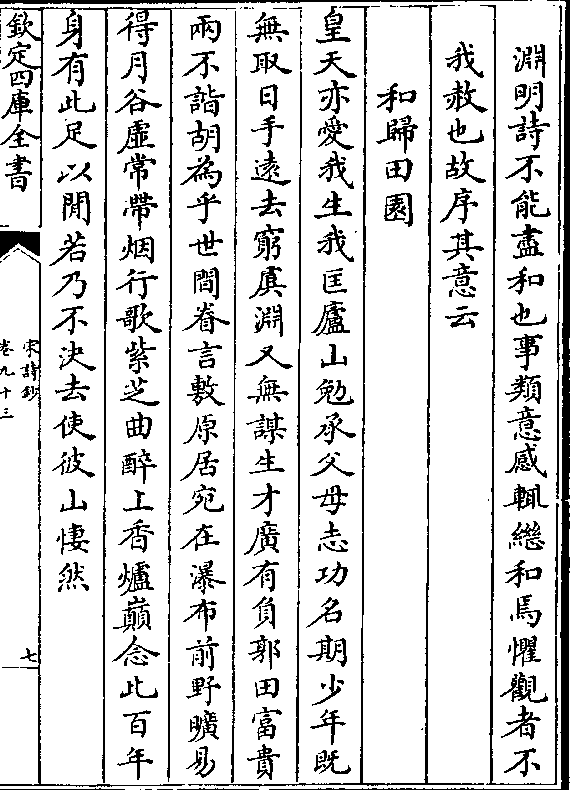 淵明詩不能盡和也事類意感輒繼和焉懼觀者不
我赦也故序其意云
和歸田園
皇天亦愛我生我匡廬山勉承父母志功名期少年既
無取日手遠去窮虞淵又無謀生才廣有負郭田富貴
兩不諧胡為乎世間眷言敷原居宛在瀑布前野曠易
得月谷虛常帶烟行歌紫芝曲醉上香爐巔念此百年
身有此足以閒若乃不決去使彼山悽然
欽定四庫全書
宋詩鈔
卷九十三
七